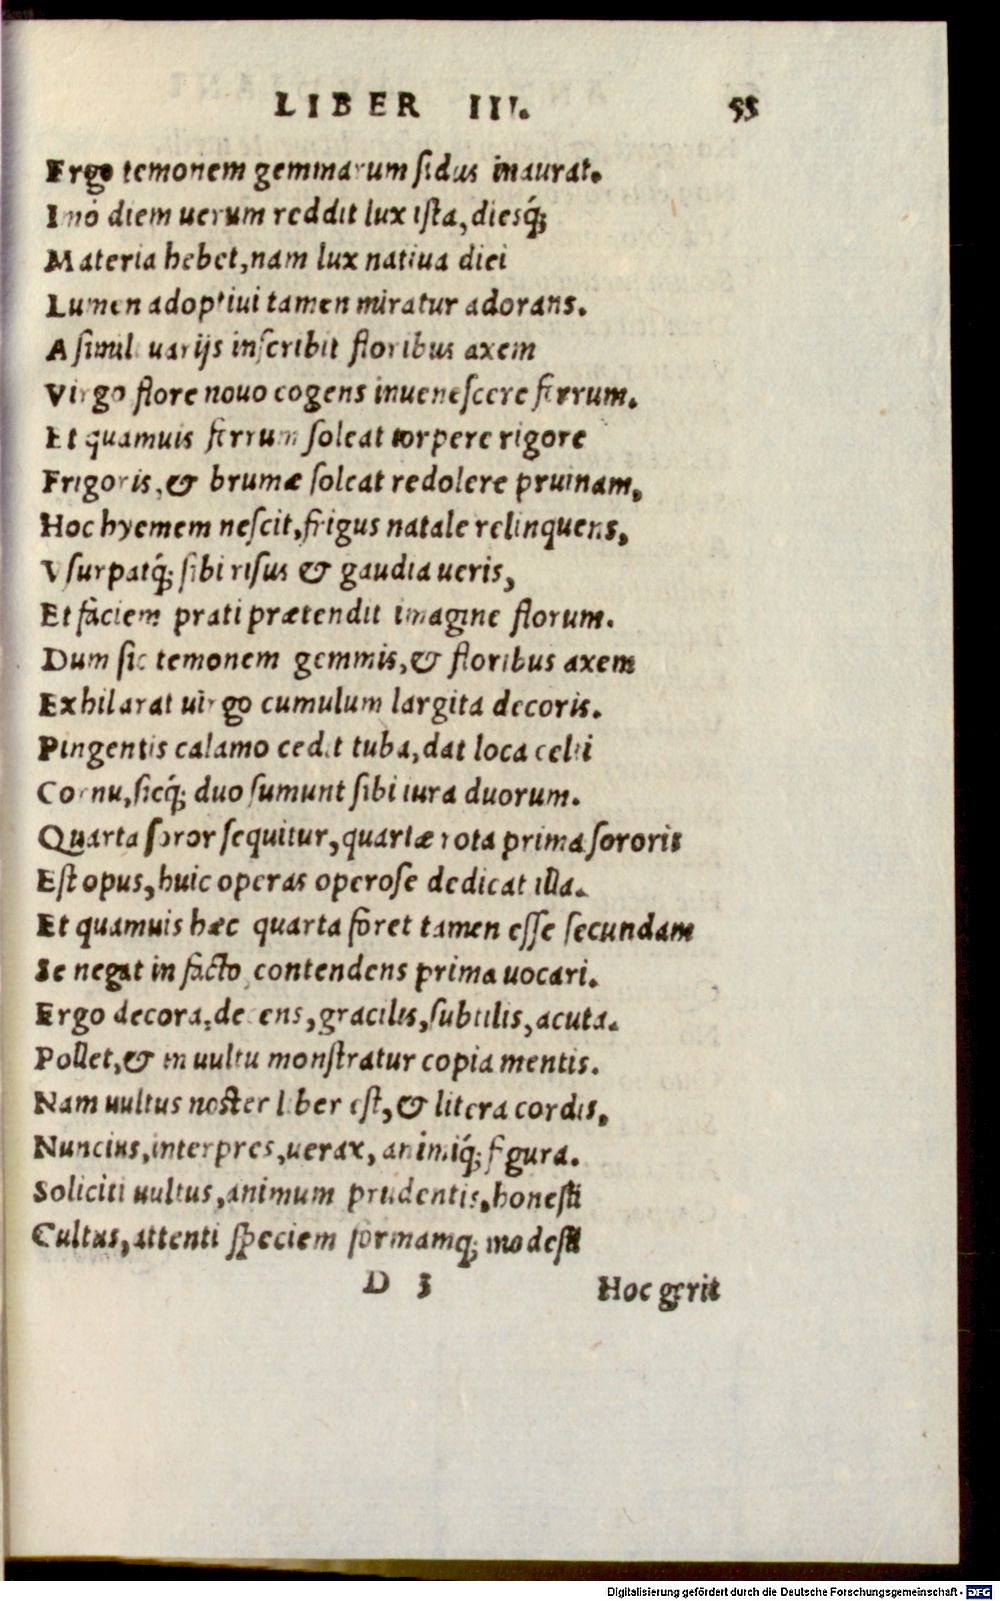 LIBER III. 55
Ergo temonem gemmarum ſidus inaurat.
Imò diem uerum reddit lux iſta, diesq́;
Materia hebet, nam lux natiua diei
Lumen adoptiui tamen miratur adorans.
A ſimili uarijs inſcribit floribus axem
Virgo flore nouo cogens iuueneſcere ferrum.
Et quamuis ferrum ſoleat torpere rigore
Frigoris, & brumæ ſoleat redolere pruinam,
Hoc hyemem neſcit, frigus natale relinquens,
Vſurpatq́; ſibi riſus & gaudia ueris,
Et faciem prati prætendit imagine florum.
Dum ſic temonem gemmis, & floribus axem
Exhilarat uirgo cumulum largita decoris.
Pingentis calamo cedit tuba, dat loca celti
Cornu, ſicq́; duo ſumunt ſibi iura duorum.
Quarta ſoror ſequitur, quartæ rota prima ſororis
Eſt opus, huic operas operoſe dedicat illa.
Et quamuis hæc quarta foret tamen eſſe ſecundam
Se negat in facto contendens prima uocari.
Ergo decora, decens, gracilis, ſubtilis, acuta.
Pollet, & in uultu monſtratur copia mentis.
Nam uultus noſter liber eſt, & litera cordis,
Nuncius, interpres, uerax, animiq́; figura.
Soliciti uultus, animum prudentis, honeſti
Cultus, attenti ſpeciem formamq; modeſti
D 3 Hoc gerit
Digitalisierung gefördert durch die Deutsche Forschungsgemeinschaft - DFG